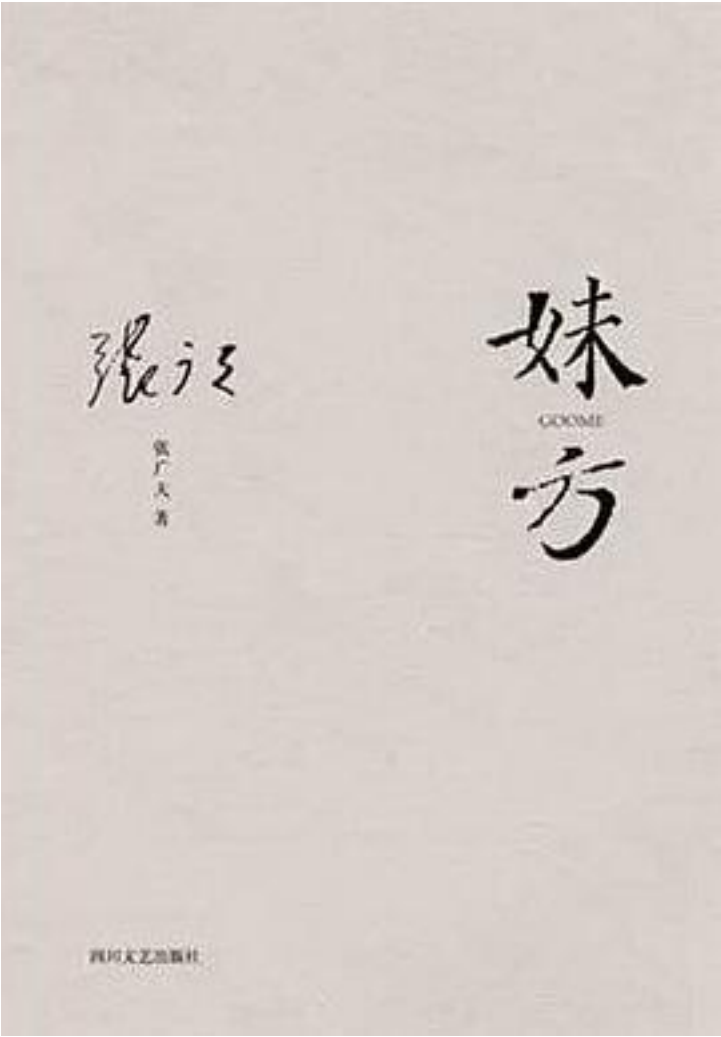 妹
GOOME
方
張广天
张广天 著
四川文艺出版社